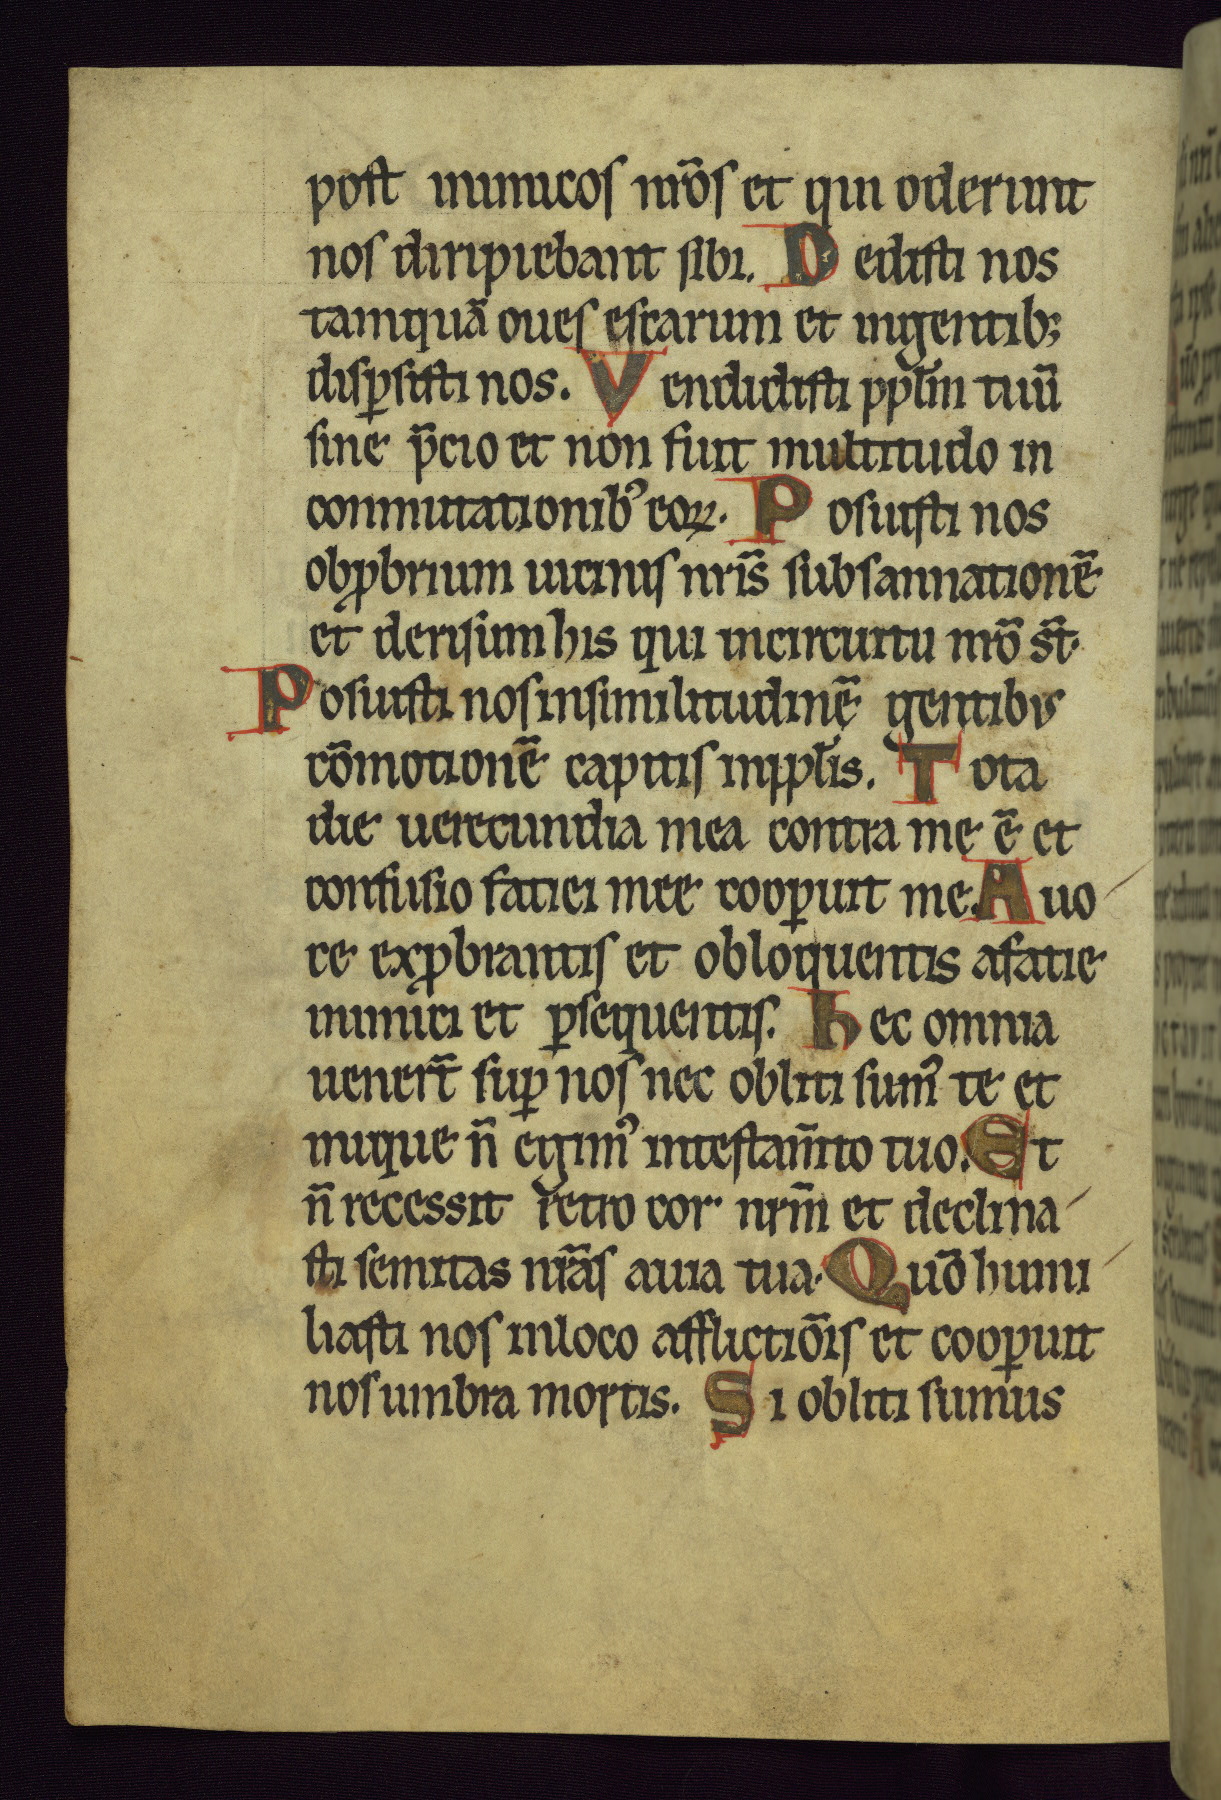 post inimicos nr̄os et qui oderunt
nos diripiebant sibi. Dedisti nos
tamquā oues escarum et ingentib;
disp̱sisti nos. Vendidisti ppl̄m tuū
sine p̄cio et non fuit multitudo in
conmutationibꝰ eoꝝ. Posuisti nos
obꝓbrium uicinis nr̄is subsannationē
et derisum his qui incircuitu nr̄o st̄.
Posuisti nos insimilitudinē gentibus
cōmotionē capitis inppl̄is. Tota
die uerecundia mea contra me ē et
confusio fatiei mee cooꝑuit me. Auo
ce exꝓbrantis et obloquentis afatie
inimici et ꝑsequentis. Hec omnia
uenert̄ suꝑ nos nec obliti sumꝰ te et
inique n̄ egimꝰ intestam̄to tuo. Et
n̄ recessit retro cor nrm̄ et declina
sti semitas nr̄as auia tua. Quō humi
liasti nos inloco afflictiōis et cooꝑuit
nos umbra mortis. Si obliti sumus